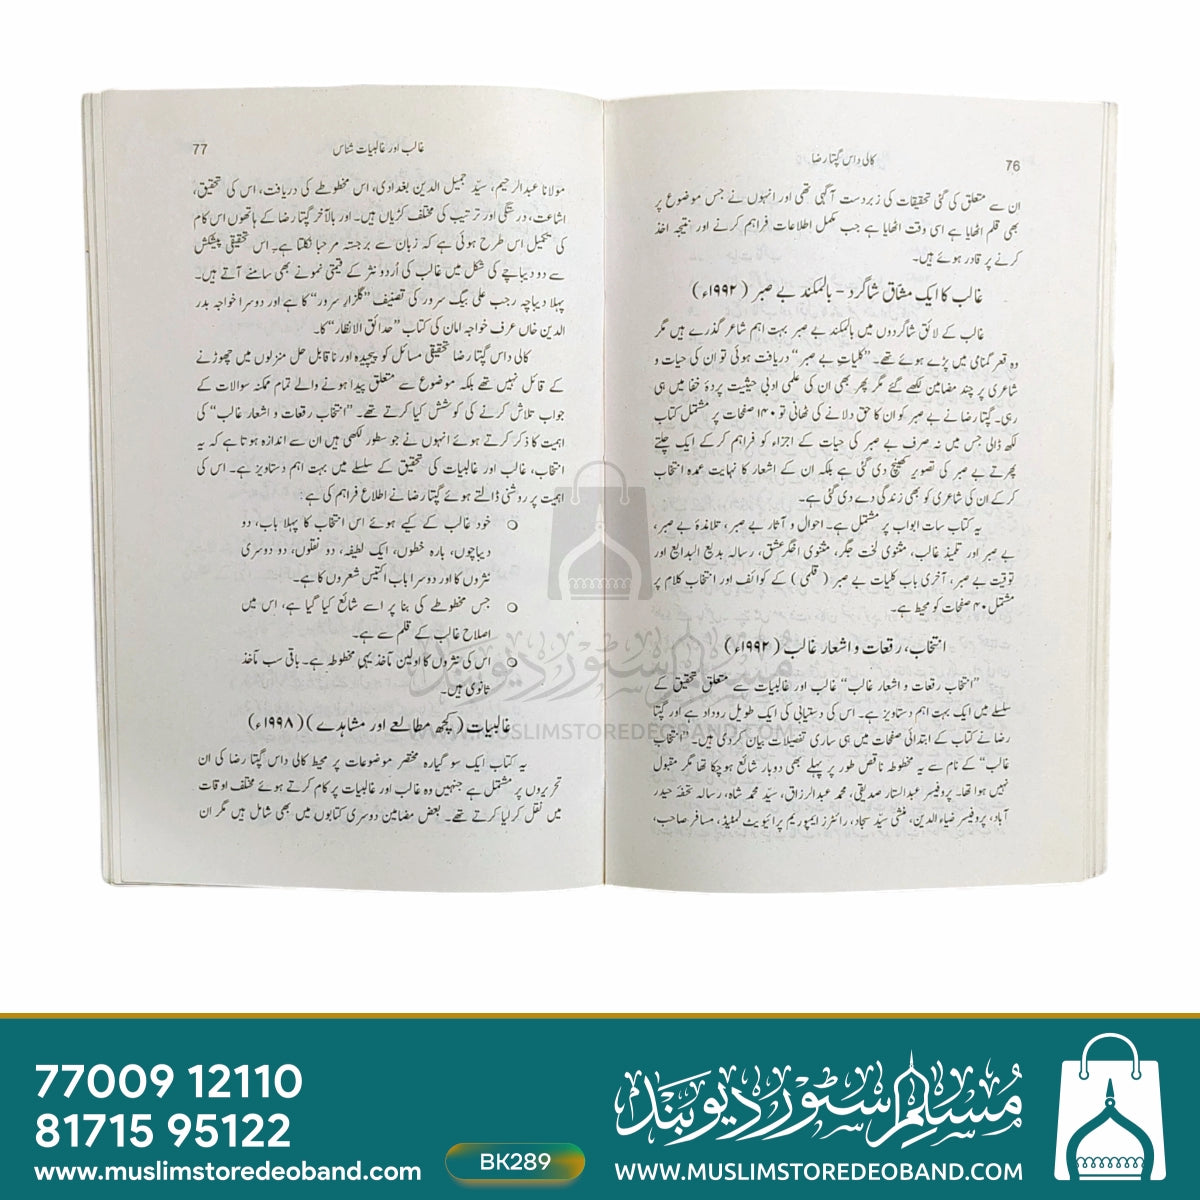 76
کالی داس گپتا رضا
ان سے متعلق کی گئی تحقیقات کی زبردست آگہی تھی اور انہوں نے جس موضوع پر
بھی قلم اٹھایا ہے اسی وقت اٹھایا ہے جب مکمل اطلاعات فراہم کرنے اور نتیجہ اخذ
کرنے پر قادر ہوئے ہیں۔
غالب کا ایک مشاق شاگرد - بالمکند بے صبر (۱۹۹۲ء)
غالب کے لائق شاگردوں میں بالمکند بے صبر بہت اہم شاعر گذرے ہیں مگر
وہ قعر گمنامی میں پڑے ہوئے تھے۔ "کلیاتِ بے صبر" دریافت ہوئی تو ان کی حیات و
شاعری پر چند مضامین لکھے گئے مگر پھر بھی ان کی علمی ادبی حیثیت پردۂ خفا میں ہی
رہی۔ گپتا رضا نے بے صبر کو ان کا حق دلانے کی ٹھانی تو ۱۴۰ صفحات پر مشتمل کتاب
لکھ ڈالی جس میں نہ صرف بے صبر کی حیات کے اجزاء کو فراہم کرکے ایک چلتے
پھرتے بے صبر کی تصویر کھینچ دی گئی ہے بلکہ ان کے اشعار کا نہایت عمدہ انتخاب
کرکے ان کی شاعری کو بھی زندگی دے دی گئی ہے۔
یہ کتاب سات ابواب پر مشتمل ہے۔ احوال و آثار بے صبر، تلامذۂ بے صبر،
بے صبر اور تلمیذ غالب، مثنوی لخت جگر، مثنوی اخگر عشق، رسالہ بدیع البدایع اور
توقیت بے صبر، آخری باب کلیات بے صبر (قلمی) کے کوائف اور انتخاب کلام پر
مشتمل ۴۰ صفحات کو محیط ہے۔
انتخاب، رقعات و اشعار غالب (۱۹۹۲ء)
"انتخاب رقعات و اشعار غالب" غالب اور غالبیات سے متعلق تحقیق کے
سلسلے میں ایک بہت اہم دستاویز ہے۔ اس کی دستیابی کی ایک طویل روداد ہے اور گپتا
رضا نے کتاب کے ابتدائی صفحات میں ہی ساری تفصیلات بیان کردی ہیں۔ "انتخاب
غالب" کے نام سے یہ مخطوطہ ناقص طور پر پہلے بھی دوبار شائع ہوچکا تھا مگر مقبول
نہیں ہوا تھا۔ پروفیسر عبدالستار صدیقی، محمد عبدالرزاق، سیّد محمد شاہ، رسالہ تحفہ حیدر
آباد، پروفیسر ضیاء الدین، منشی سیّد سجاد، رائٹرز ایمپوریم پرائیویٹ لمیٹیڈ، مسافر صاحب،
77
غالب اور غالبیات شناس
مولانا عبدالرحیم، سیّد جمیل الدین بغدادی، اس مخطوطے کی دریافت، اس کی تحقیق،
اشاعت، درستگی اور ترتیب کی مختلف کڑیاں ہیں۔ اور بالآخر گپتا رضا کے ہاتھوں اس کام
کی تکمیل اس طرح ہوئی ہے کہ زبان سے برجستہ مرحبا نکلتا ہے۔ اس تحقیقی پیشکش
سے دو دیباچے کی شکل میں غالب کی اُردو نثر کے قیمتی نمونے بھی سامنے آتے ہیں۔
پہلا دیباچہ رجب علی بیگ سرور کی تصنیف "گلزارِ سرور" کا ہے اور دوسرا خواجہ بدر
الدین خاں عرف خواجہ امان کی کتاب "حدائق الانظار" کا۔
کالی داس گپتا رضا تحقیقی مسائل کو پیچیدہ اور ناقابل حل منزلوں میں چھوڑنے
کے قائل نہیں تھے بلکہ موضوع سے متعلق پیدا ہونے والے تمام ممکنہ سوالات کے
جواب تلاش کرنے کی کوشش کیا کرتے تھے۔ "انتخاب رقعات و اشعار غالب" کی
اہمیت کا ذکر کرتے ہوئے انہوں نے جو سطور لکھی ہیں ان سے اندازہ ہوتا ہے کہ یہ
انتخاب، غالب اور غالبیات کی تحقیق کے سلسلے میں بہت اہم دستاویز ہے۔ اس کی
اہمیت پر روشنی ڈالتے ہوئے گپتا رضا نے اطلاع فراہم کی ہے:
○ خود غالب کے کیے ہوئے اس انتخاب کا پہلا باب، دو
دیباچوں، بارہ خطوں، ایک لطیفہ، دو نقلوں، دو دوسری
نثروں کا اور دوسرا باب اکتیس شعروں کا ہے۔
○ جس مخطوطے کی بنا پر اسے شائع کیا گیا ہے، اس میں
اصلاح غالب کے قلم سے ہے۔
○ اس کی نثروں کا اولین مآخذ یہی مخطوطہ ہے۔ باقی سب مآخذ
ثانوی ہیں۔
غالبیات (کچھ مطالعے اور مشاہدے) (۱۹۹۸ء)
یہ کتاب ایک سو گیارہ مختصر موضوعات پر محیط کالی داس گپتا رضا کی ان
تحریروں پر مشتمل ہے جنہیں وہ غالب اور غالبیات پر کام کرتے ہوئے مختلف اوقات
میں نقل کرلیا کرتے تھے۔ بعض مضامین دوسری کتابوں میں بھی شامل ہیں مگر ان
مسلم سٹور دیوبند
WWW.MUSLIMSTOREDEOBAND.COM
77009 12110
81715 95122
www.muslimstoredeoband.com
BK289
مسلم سٹور دیوبند
WWW.MUSLIMSTOREDEOBAND.COM